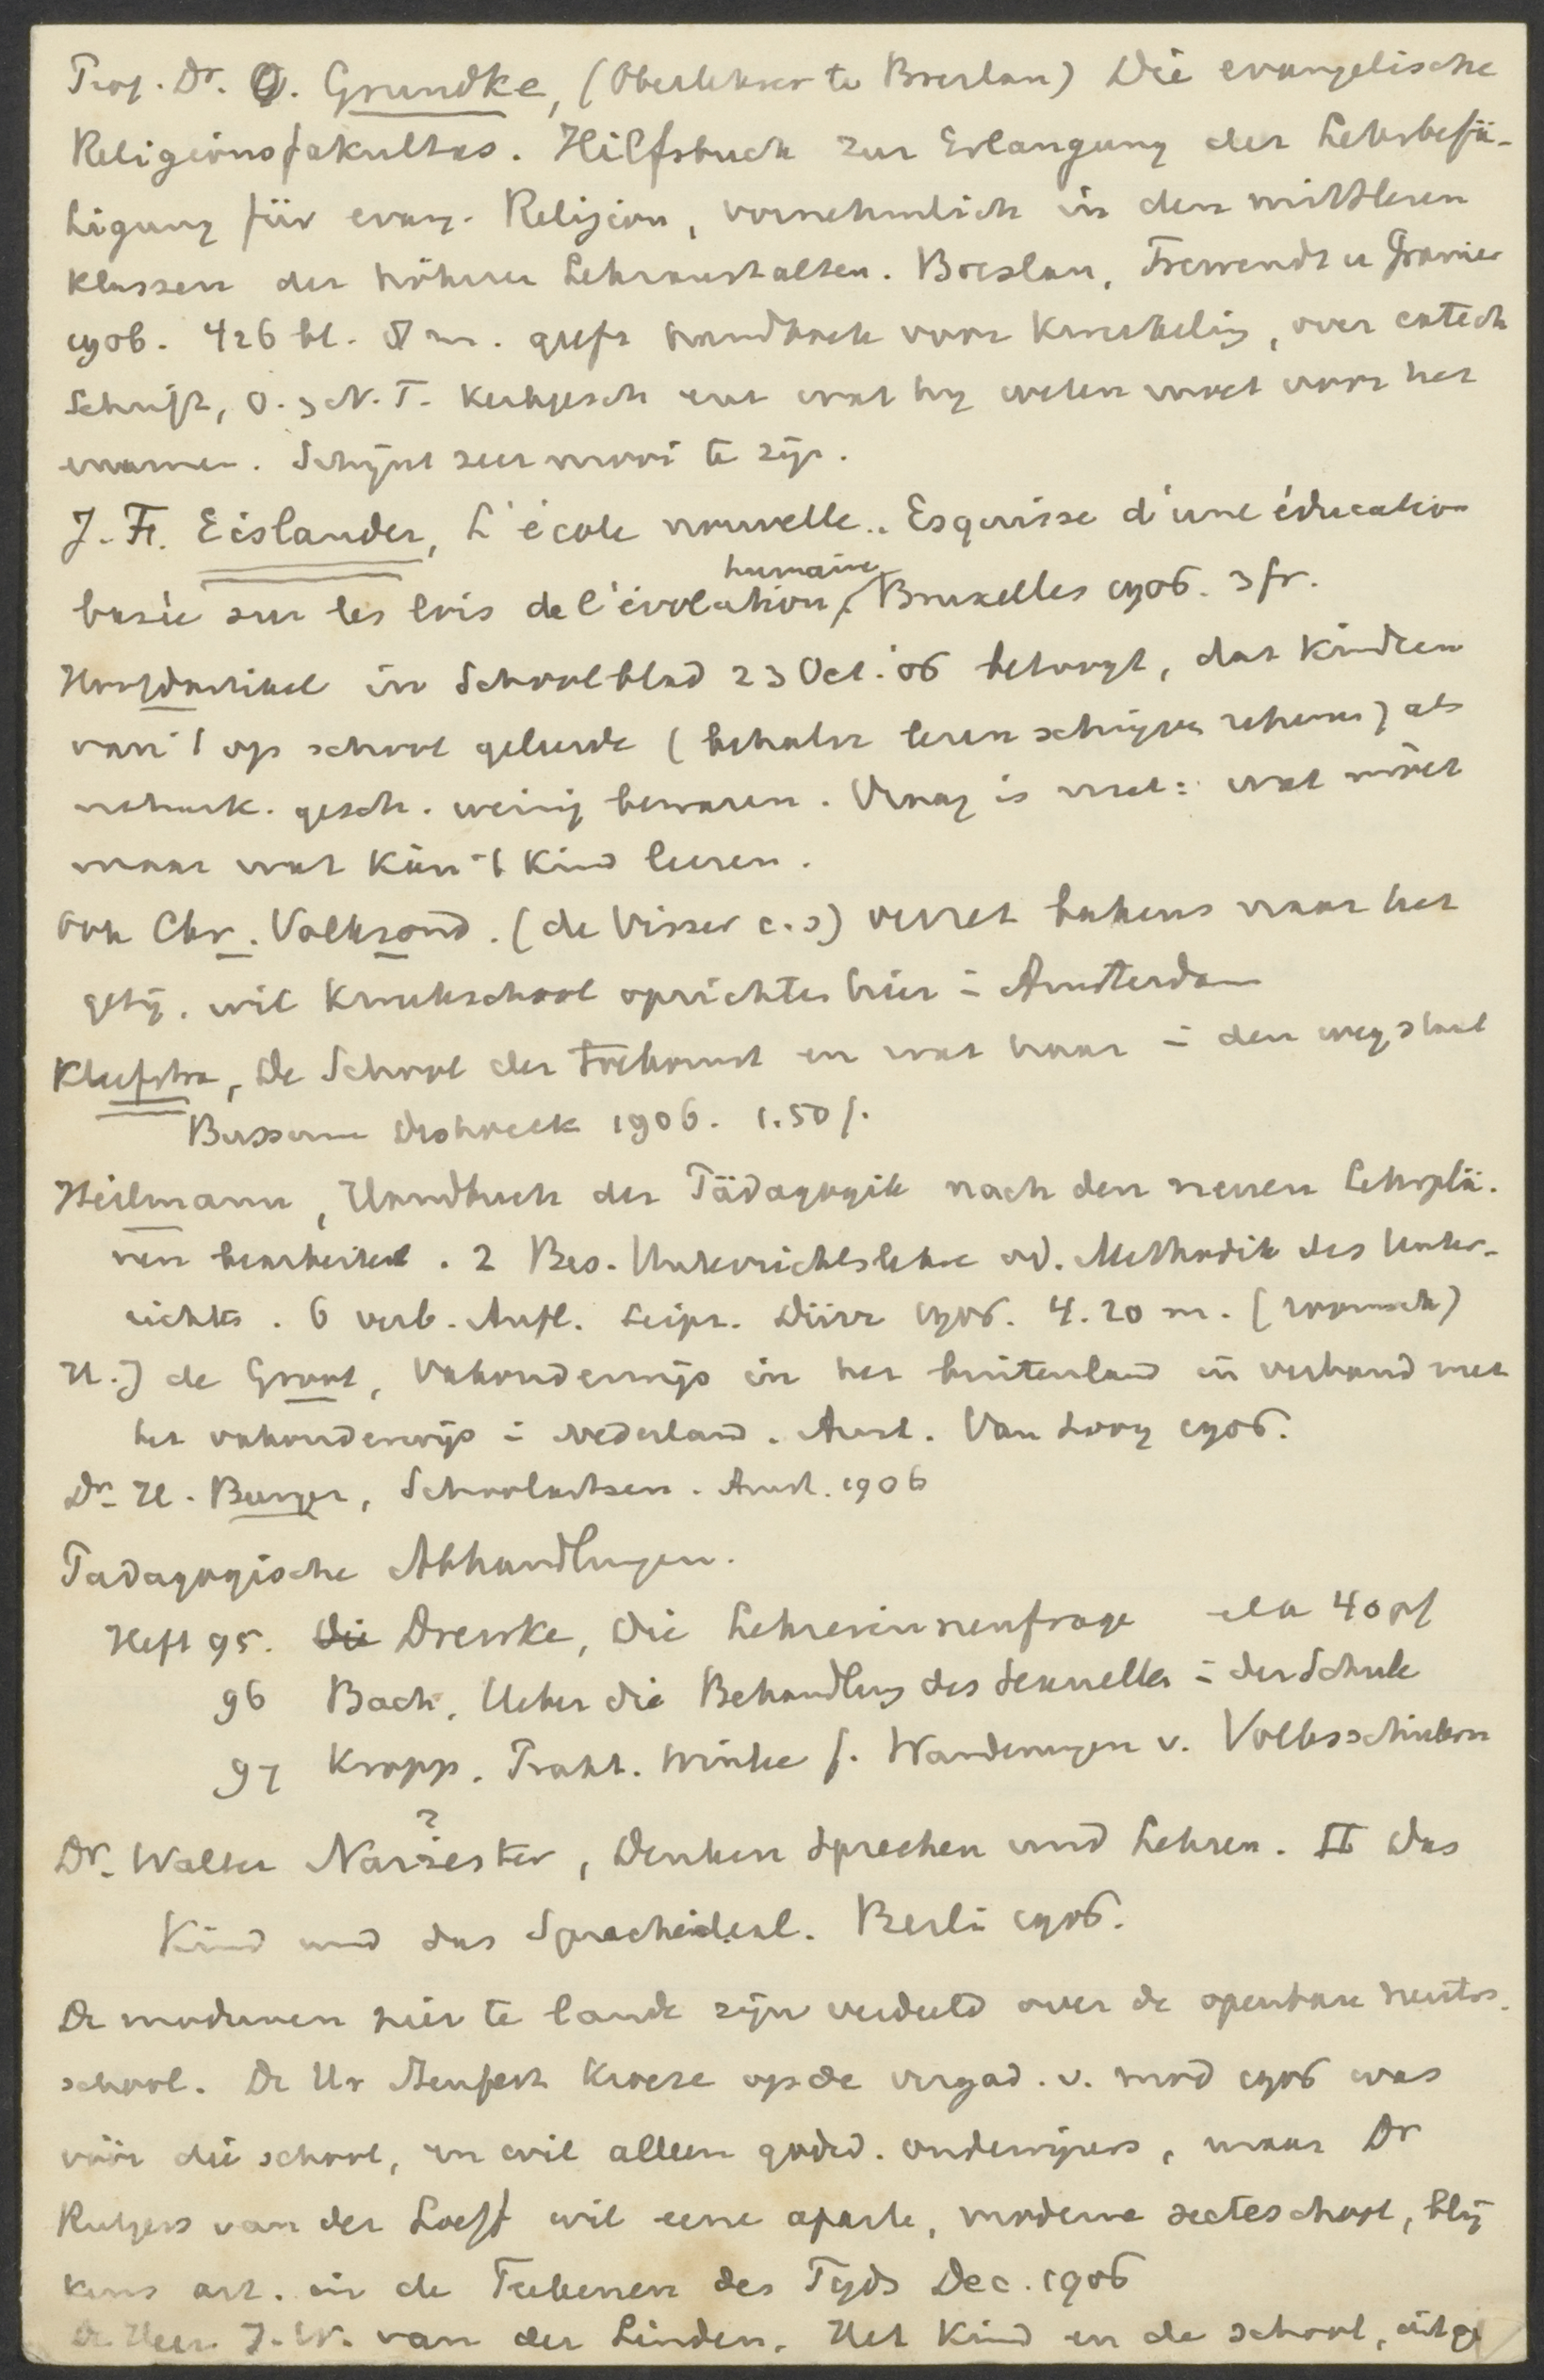 Prof. Dr. O. Grundke, (Oberlehrer te Breslau) Die evangelische
Religionsfakultas. Hilfsbuch zur Erlangung der Lehrbefä-
higung für evang. Religion, vornehmlich in den mittleren
Klassen der höheren Lehranstalten. Breslau, Trewendt u Granier
1906. 426 bl. 8 m. geeft handboek voor kweekeling, over catech
Schrift, O. & N. T. Kerkgesch en wat hij weten moet voor het
examen. Schijnt zeer mooi te zijn.
J. Fr. Eislander, L'école nouvelle. Esquisse d'une éducation
basée sur les lois de l'évolution humaine, Bruxelles 1906. 3 fr.
Hoofdartikel in Schoolblad 23 Oct. '06 betoogt, dat kinderen
van 't op school geleerde (behalve lezen schrijven rekenen) als
natuurk. gesch. weinig bewaren. Vraag is niet: wat móet
maar wat kán 't kind leeren.
Ook Chr. Volksond. (de Visser c.s) verzet bakens naar het
getij. wil kweekschool oprichten hier in Amsterdam
Kleefstra, De School der Toekomst en wat haar in den weg staat
Bussum Dishoeck 1906. 1.50 f.
Heilmann, Handbuch der Pädagogik nach den neuen Lehrplä-
nen bearbeitet. 2 Bes. Unterrichtslehre od. Methodik des Unter-
richts. 6 verb. Aufl. Leipz. Dürr 1906. 4.20 m. (roomsch)
H. J de Groot, Vakonderwijs in het buitenland in verband met
het vakonderwijs in Nederland. Amst. Van Looy 1906.
Dr. H. Burger, Schoolartsen. Amst. 1906
Padagogische Abhandlungen.
Heft 95. Die Drewke, Die Lehrerinnenfrage elk 40 pf
96 Bach, Ueber die Behandlung des Sexuellen in der Schule
97 Kropp. Prakt. Winke f. Wanderungen v. Volksschülern
?
Dr. Walter Narzester, Denken Sprechen und Lehren. II Das
Kind und das Sprachideal. Berlin 1906.
De modernen hier te lande zijn verdeeld over de openbare neutr.
school. De Hr Kroese op de vergad. v. mod 1906 was
vóór die school, en wil alleen godsd. onderwijzers, maar Dr
Rutgers van der Loeff wil eene aparte, moderne secteschool, blij
kens art. in de Teekenen des Tijds Dec. 1906
De Heer J. W. van der Linden, Het kind en de school, uitg